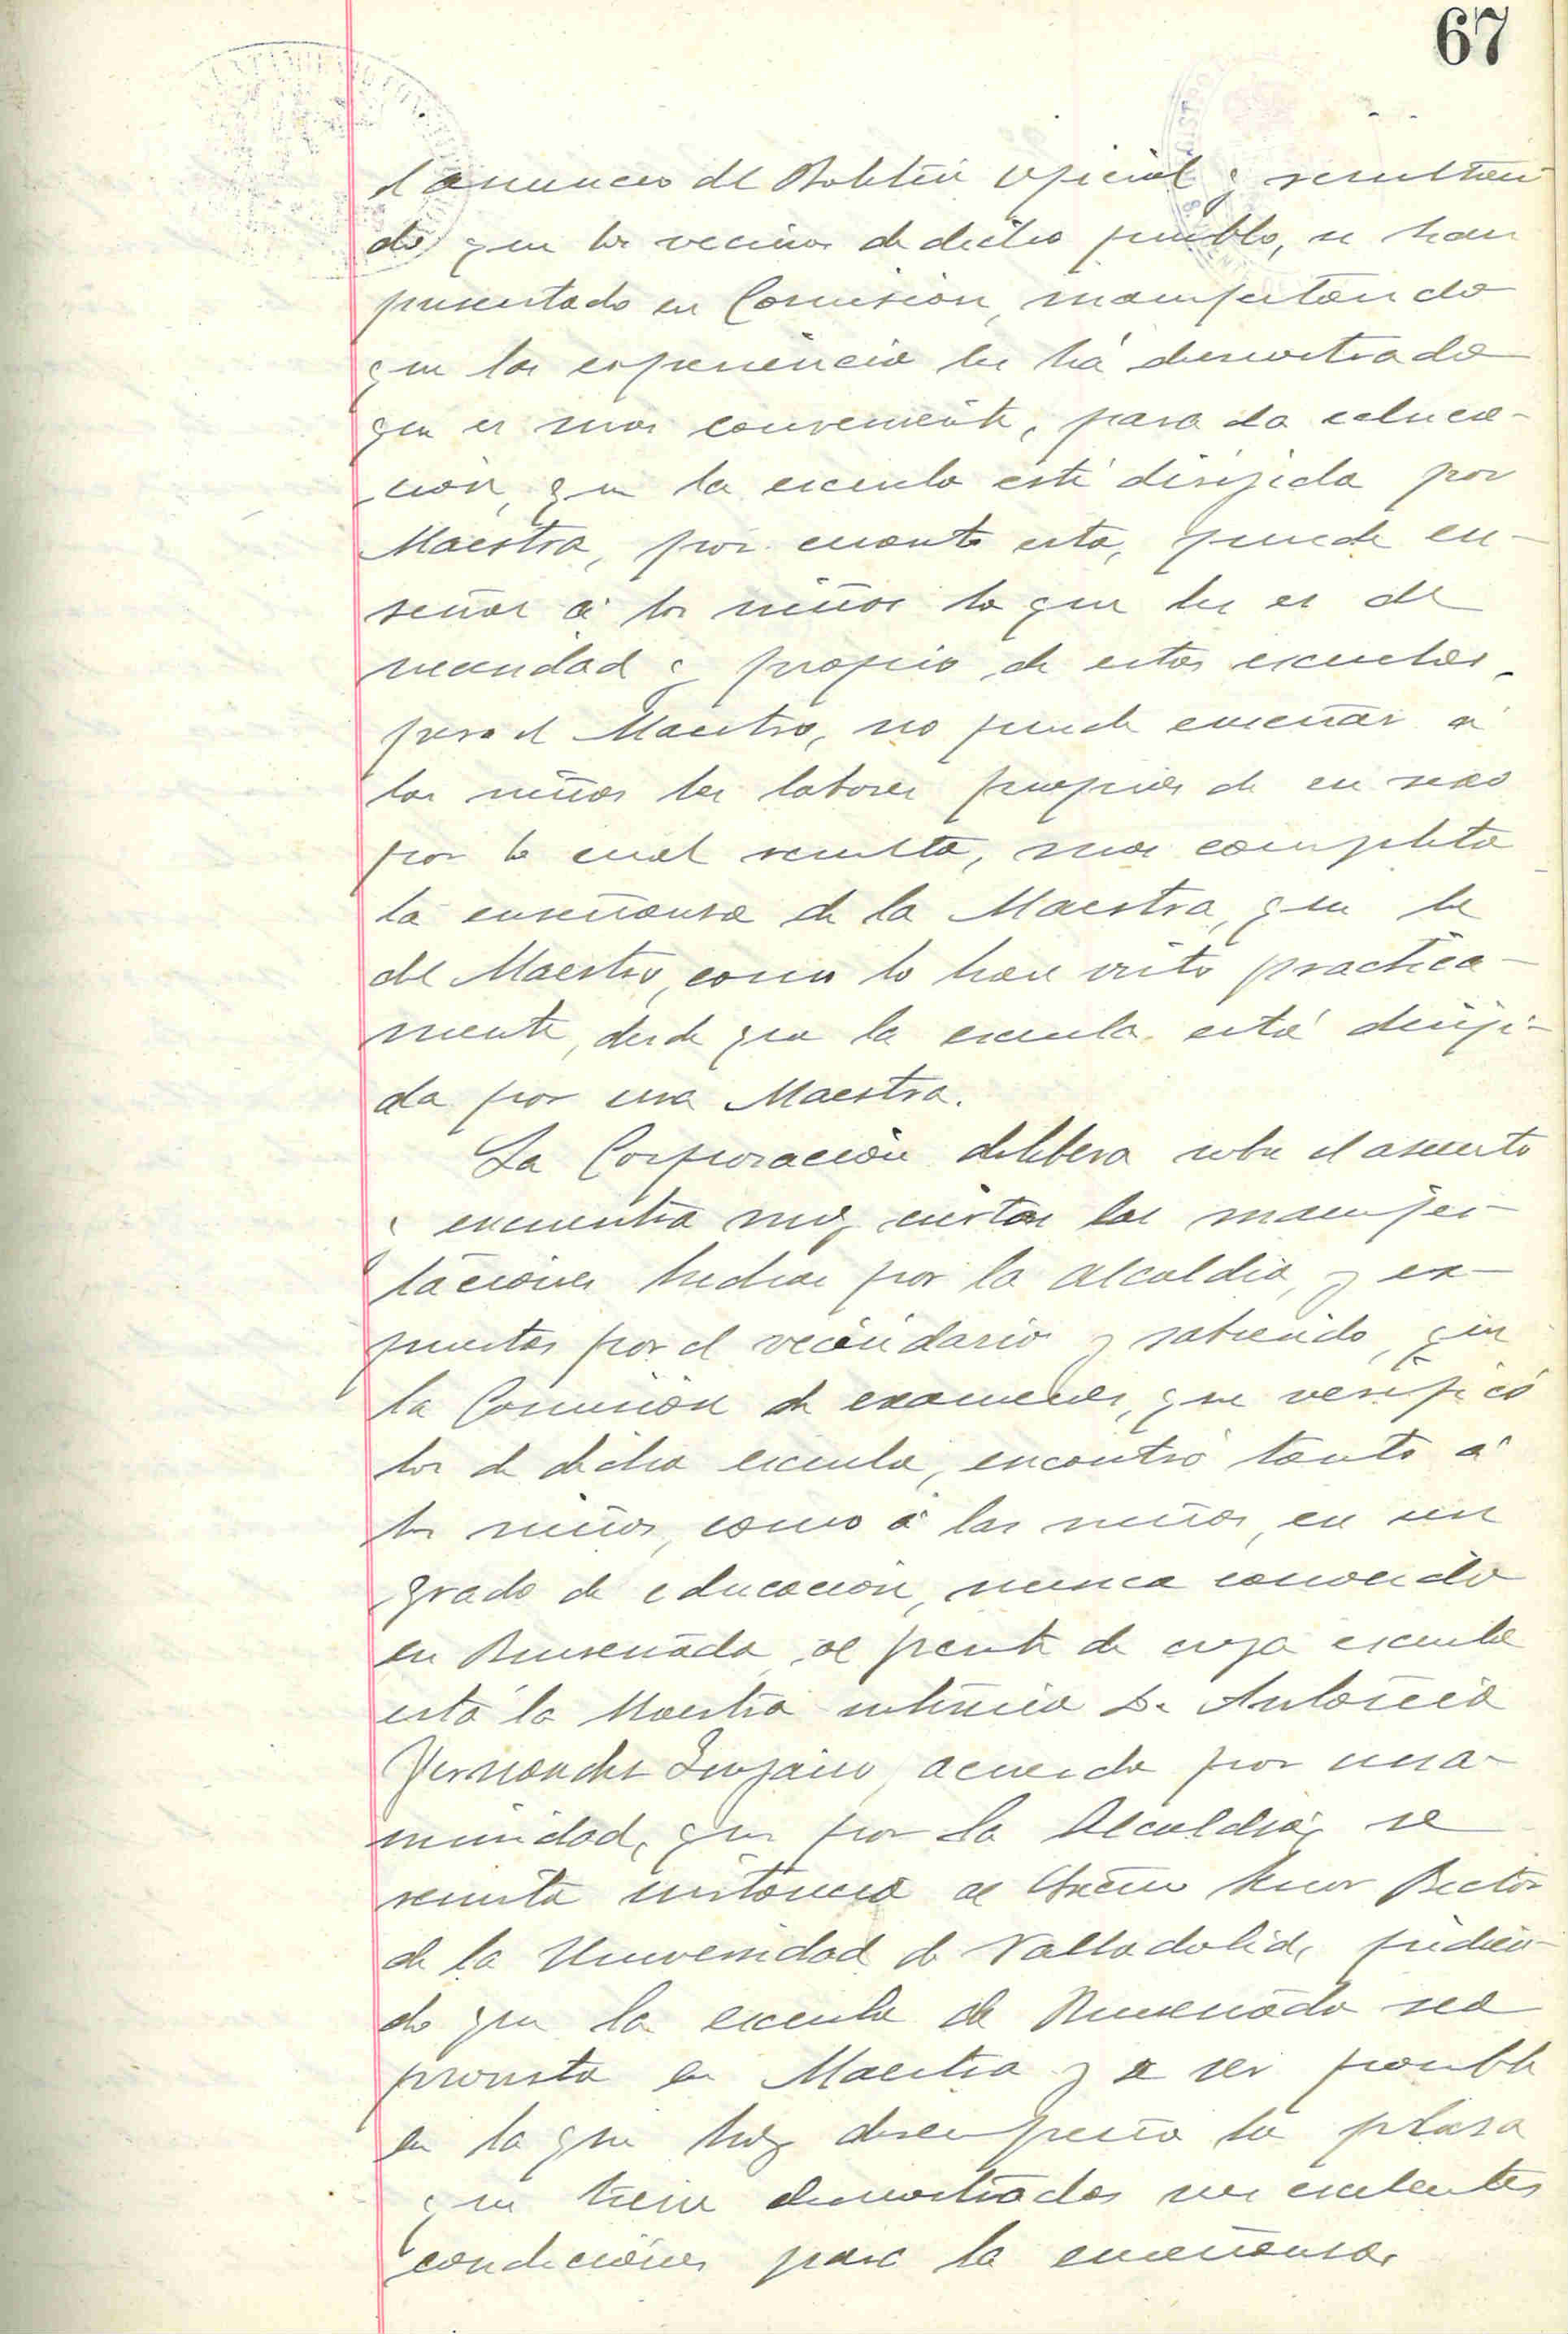 67
el anuncio del Boletin Oficial y resultan
do que los vecinos de dicho pueblo, se han
presentado en Comision, manifestando
que la esperiencia les há demostrado
que es mas conveniente, para la educa-
cion, que la escuela esté dirijida por
Maestra, por cuanto esta, puede en-
señar á los niños lo que les es de
necesidad y propio de estas escuelas,
pero el Maestro, no puede enseñar á
las niñas las labores propias de su sexo
por lo cual resulta, mas completa
la enseñansa de la Maestra, que la
del Maestro, como lo han visto practica-
mente, desde que la escuela está diriji-
da por una Maestra.
La Corporación delibera sobre el asunto
y encuentra muy ciertas las manifes-
taciones hechas por la alcaldia, y ex-
puestas por el vecindario y sabiendo, que
la Comision de examenes, que verificó
los de dicha escuela, encontró tanto á
los niños, como á las niñas, en un
grado de educacion, nunca conocido
en Ruseñada, al frente de cuya escuela
está la Maestra interina Dª Antonia
Fernandez, acuerda por una-
nimidad, que por la Alcaldia, se
remita instancia al Señor Rector
de la Universidad de Valladolid, pidien-
do que la escuela de Ruseñada sea
provista en Maestra y a ser posible
en la que hoy desempeña la plasa
que tiene demostradas sus exelentes
condiciones para la enseñansa.